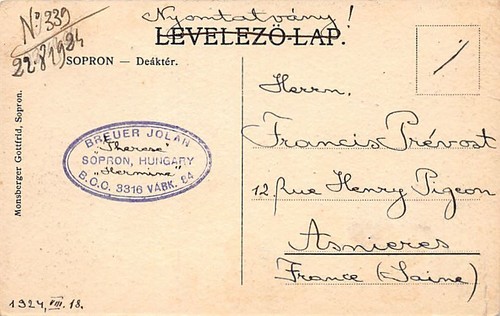 No. 339
22.8 1924
Nyomtatvány!
LEVELEZŐ-LAP.
SOPRON — Deáktér.
Monsberger Gottfrid, Sopron.
BREUER JOLÁN
"Therese"
SOPRON, HUNGARY
"Hermine"
B.O.O. 3316 VÁRK. 84
Herrn.
Francis Prévost
12, Rue Henry Pigeon
Asnieres
France (Saine)
1924, VIII. 18.